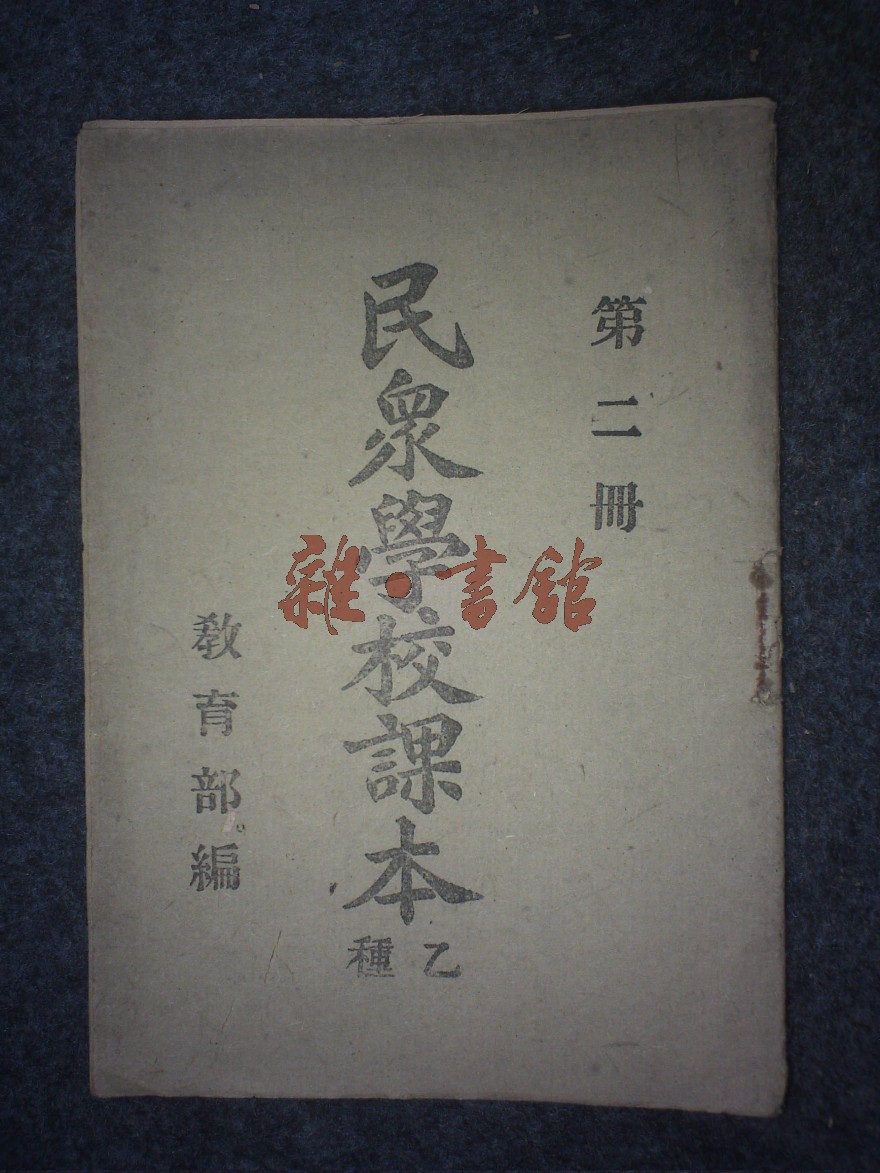 第二冊
民眾學校課本
乙種
教育部編
雜·書館